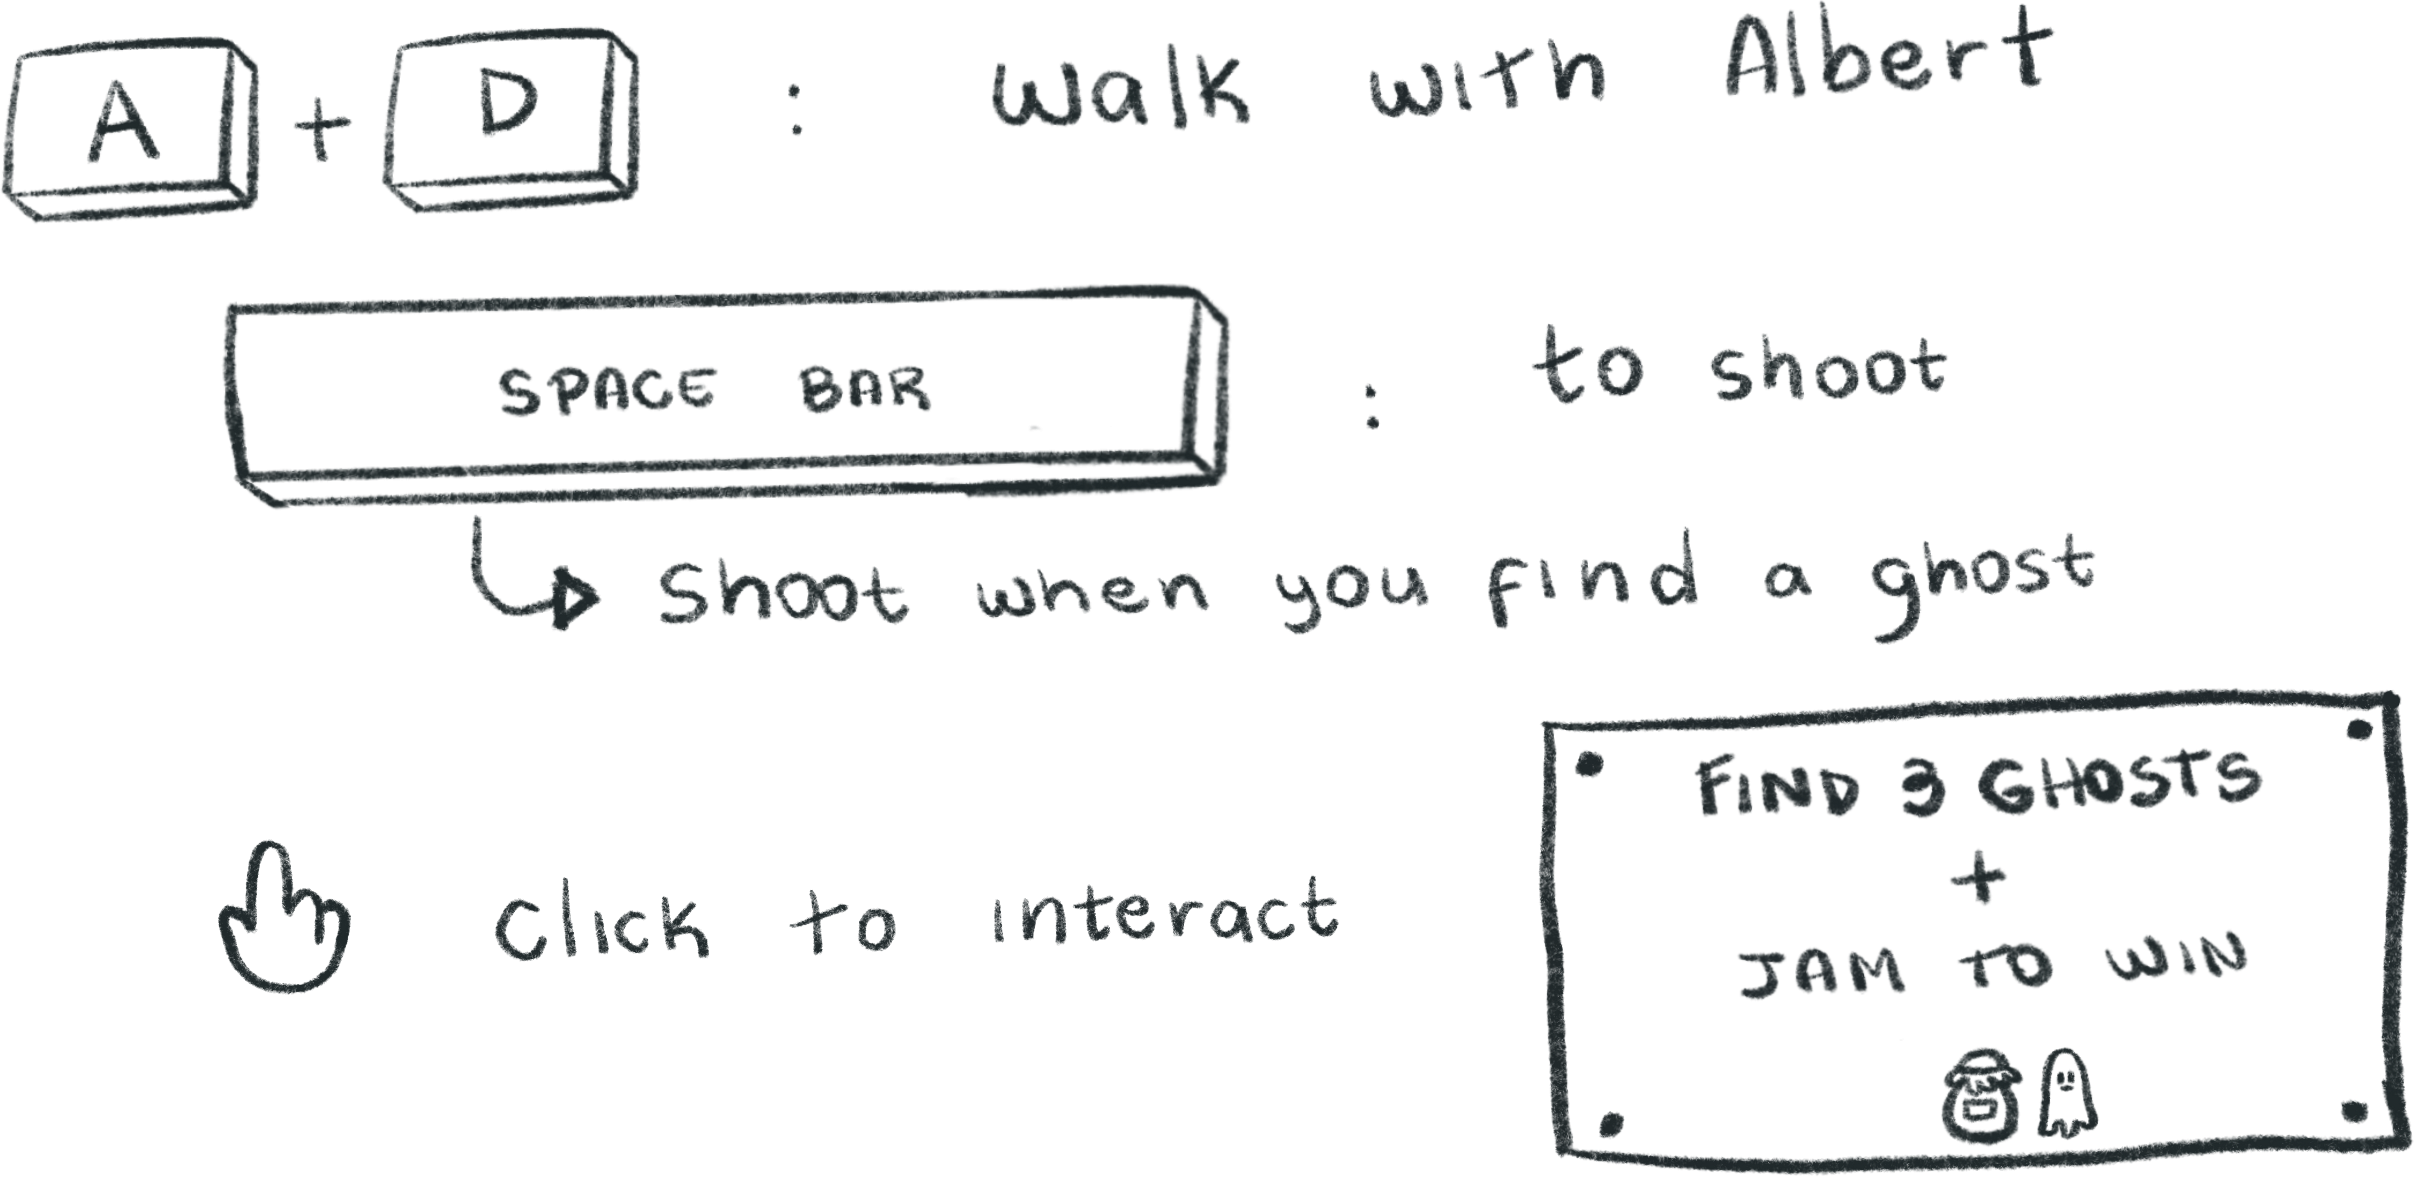 A + D : walk with Albert
SPACE BAR : to shoot
shoot when you find a ghost
click to interact
FIND 3 GHOSTS
+
JAM TO WIN